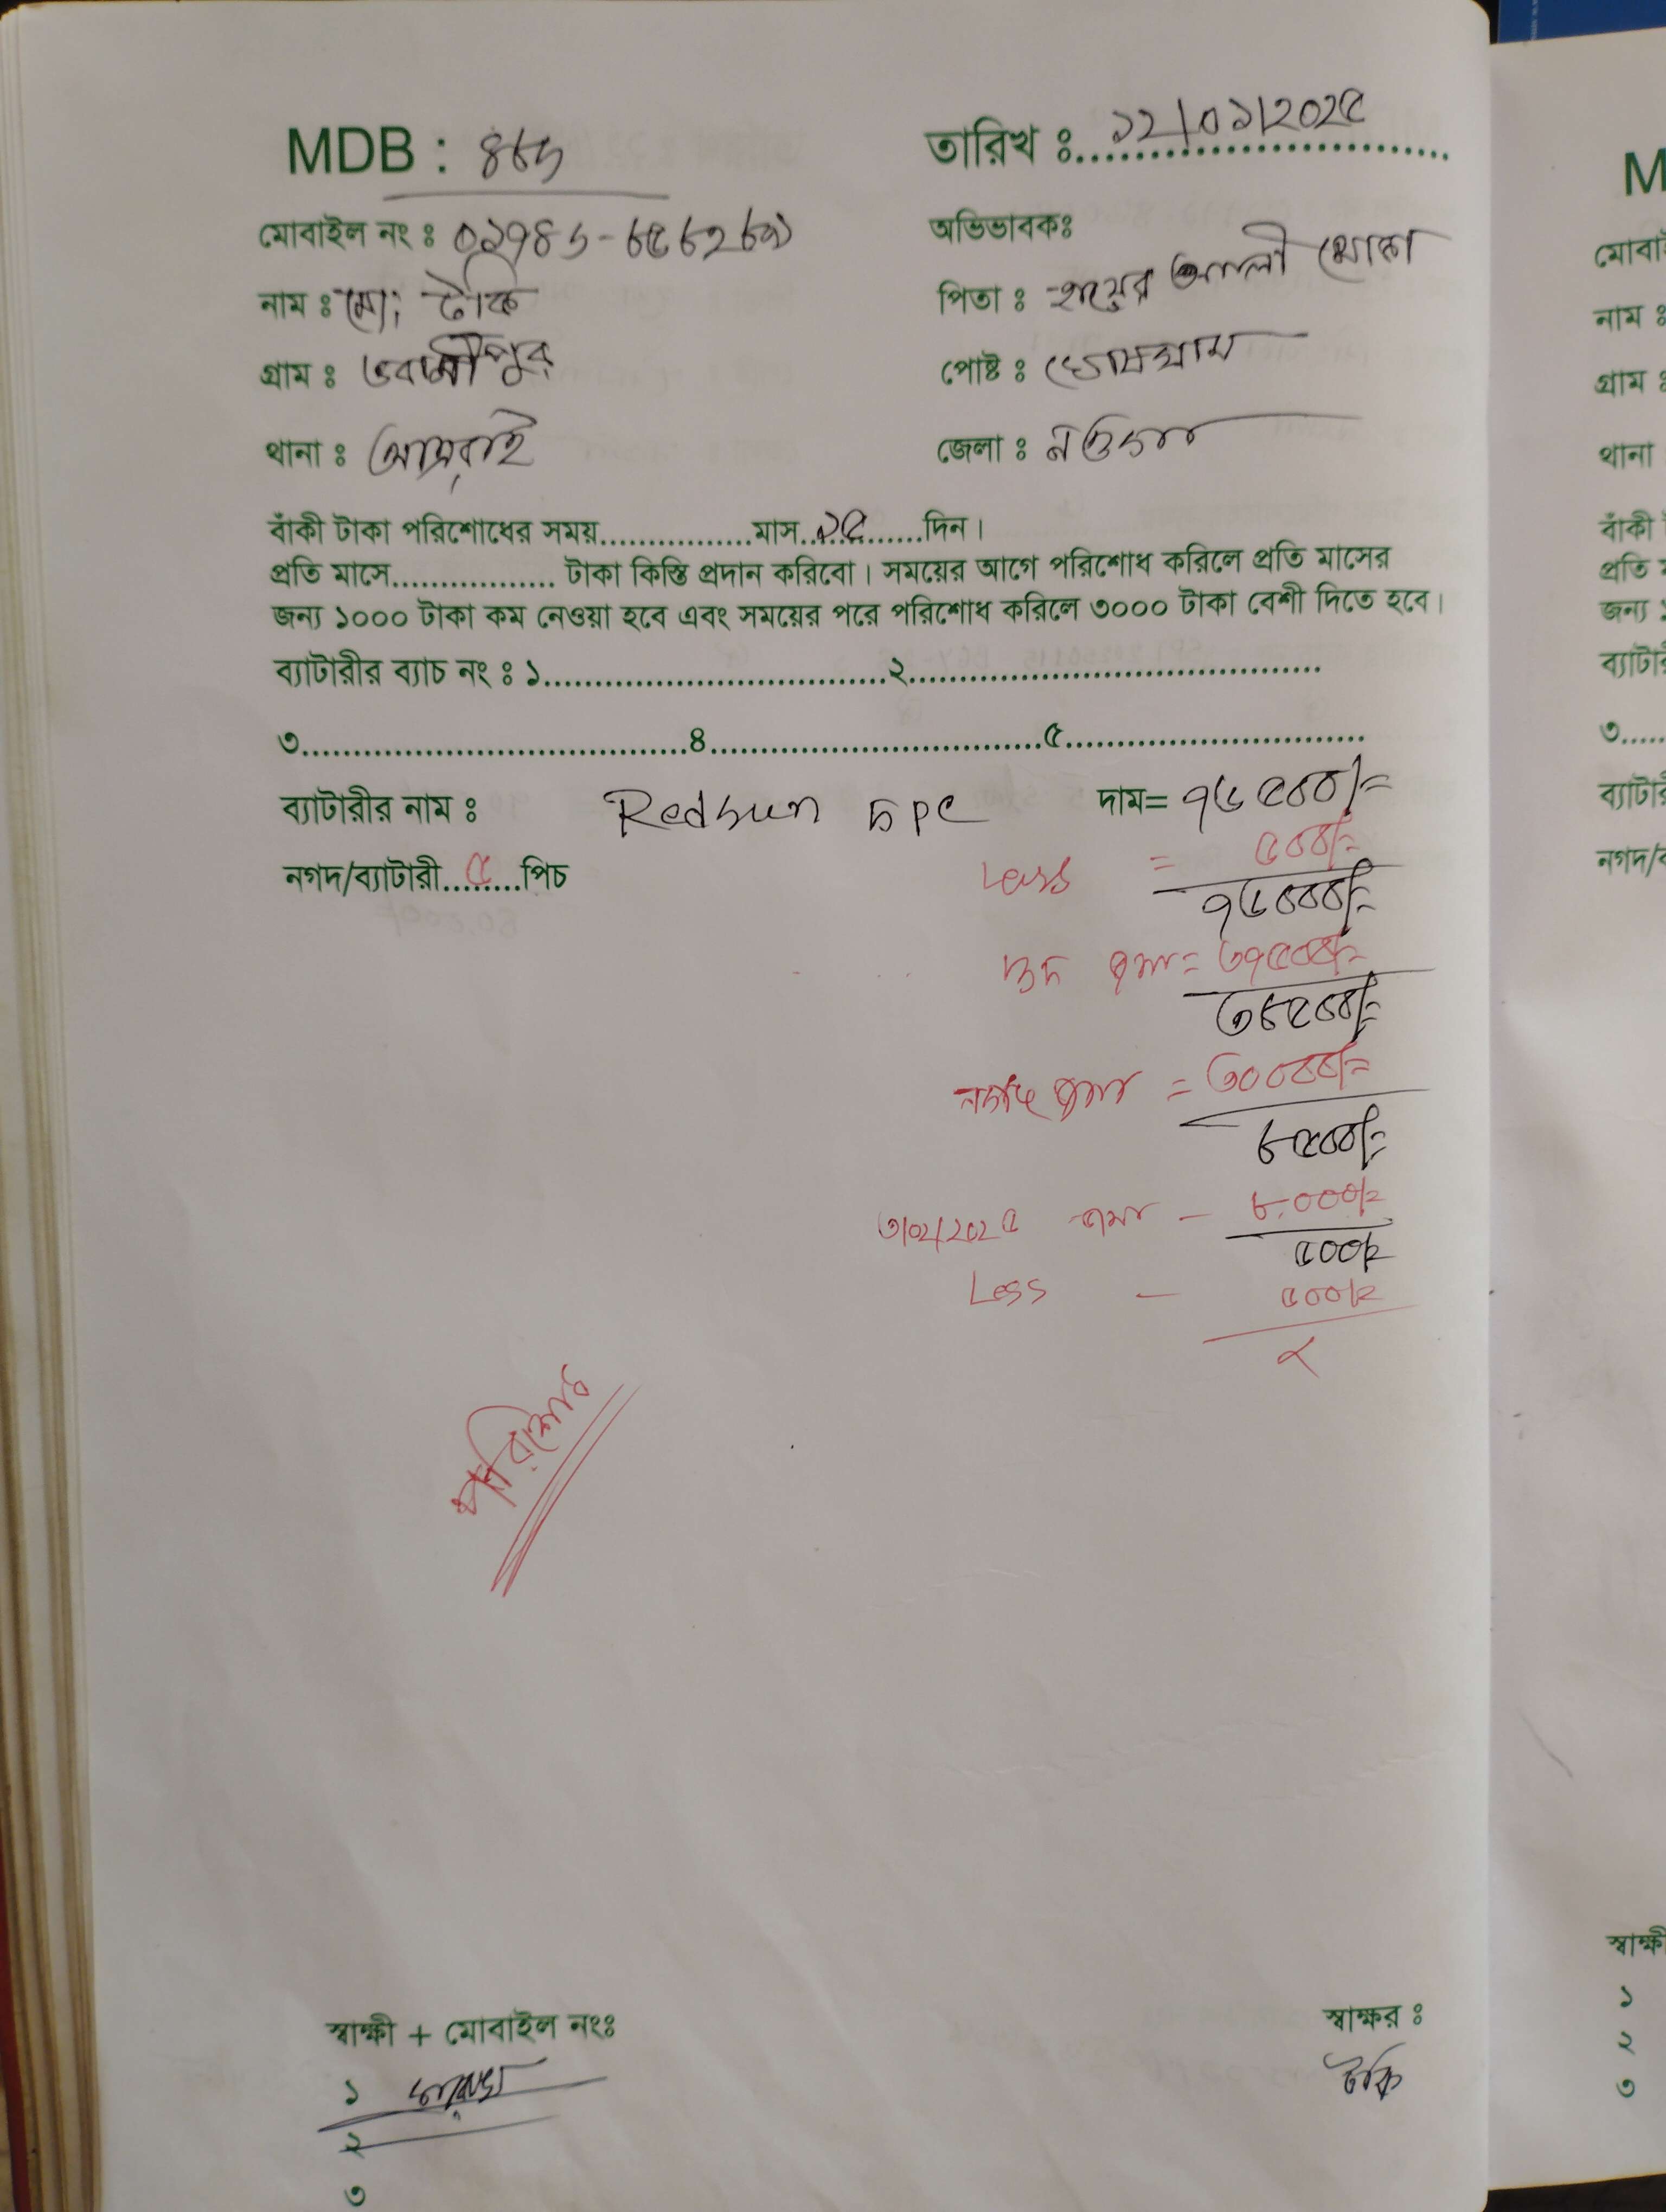 MDB : ৪৮৬
তারিখ ঃ ১২/০১/২০২৫
মোবাইল নং ঃ
অভিভাবকঃ
নাম ঃ মো: টকি
পিতা ঃ আলী মোল্লা
গ্রাম ঃ ভবানীপুর
পোষ্ট ঃ
থানা ঃ আত্রাই
জেলা ঃ নওগাঁ
বাঁকী টাকা পরিশোধের সময়................মাস..১৫......দিন।
প্রতি মাসে................. টাকা কিস্তি প্রদান করিবো। সময়ের আগে পরিশোধ করিলে প্রতি মাসের
জন্য ১০০০ টাকা কম নেওয়া হবে এবং সময়ের পরে পরিশোধ করিলে ৩০০০ টাকা বেশী দিতে হবে।
ব্যাটারীর ব্যাচ নং ঃ ১....................................২..........................................
৩......................................৪..................................৫...............................
ব্যাটারীর নাম ঃ Redsun ৫pc দাম= ৭৬৫০০/=
Less = ৫০০/=
নগদ/ব্যাটারী...৫...পিচ
৭৬০০০/=
জমা = ৩৭৫০০/=
৩৮৫০০/=
নগদ জমা = ৩০০০০/=
৮৫০০/=
৩/০২/২০২৫ জমা – ৮.০০০/=
৫০০/=
Less – ৫০০/=
×
পরিশোধ
স্বাক্ষী + মোবাইল নংঃ
স্বাক্ষর ঃ
১
টকি
২
৩
M
মোবাই
নাম ঃ
গ্রাম ঃ
থানা
বাঁকী
প্রতি
জন্য
ব্যাটারী
৩.....
ব্যাটারী
নগদ/ব
স্বাক্ষী
১
২
৩